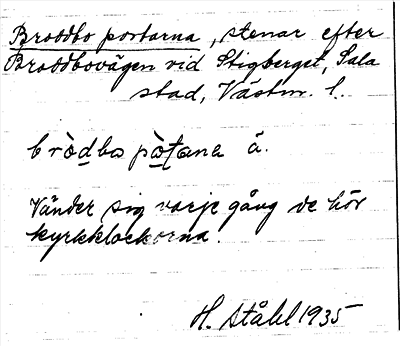 Broddbo portarna, stenar efter
Broddbovägen vid Stigberget, Sala
stad, Västm. l.
bròdba pòṭana å.
Vänder sig varje gång de hör
kyrkklockorna.
H. Ståhl 1935